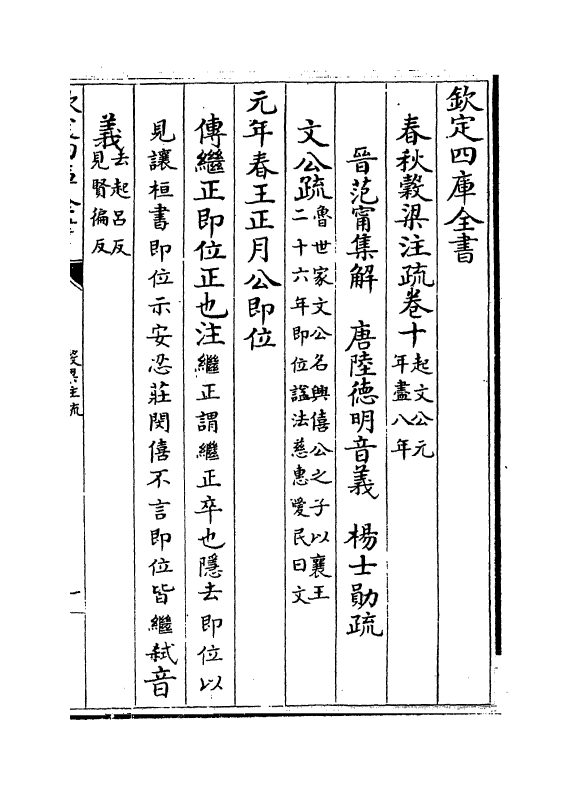 欽定四庫全書
春秋穀梁注疏卷十起文公元年盡八年
晉范甯集解　唐陸德明音義　楊士勛疏
文公疏魯世家文公名興僖公之子以襄王二十六年即位諡法慈惠愛民曰文
元年春王正月公即位
傳繼正即位正也注繼正謂繼正卒也隱去即位以
見讓桓書即位示安忍莊閔僖不言即位皆繼弒音
義去起呂反見賢徧反